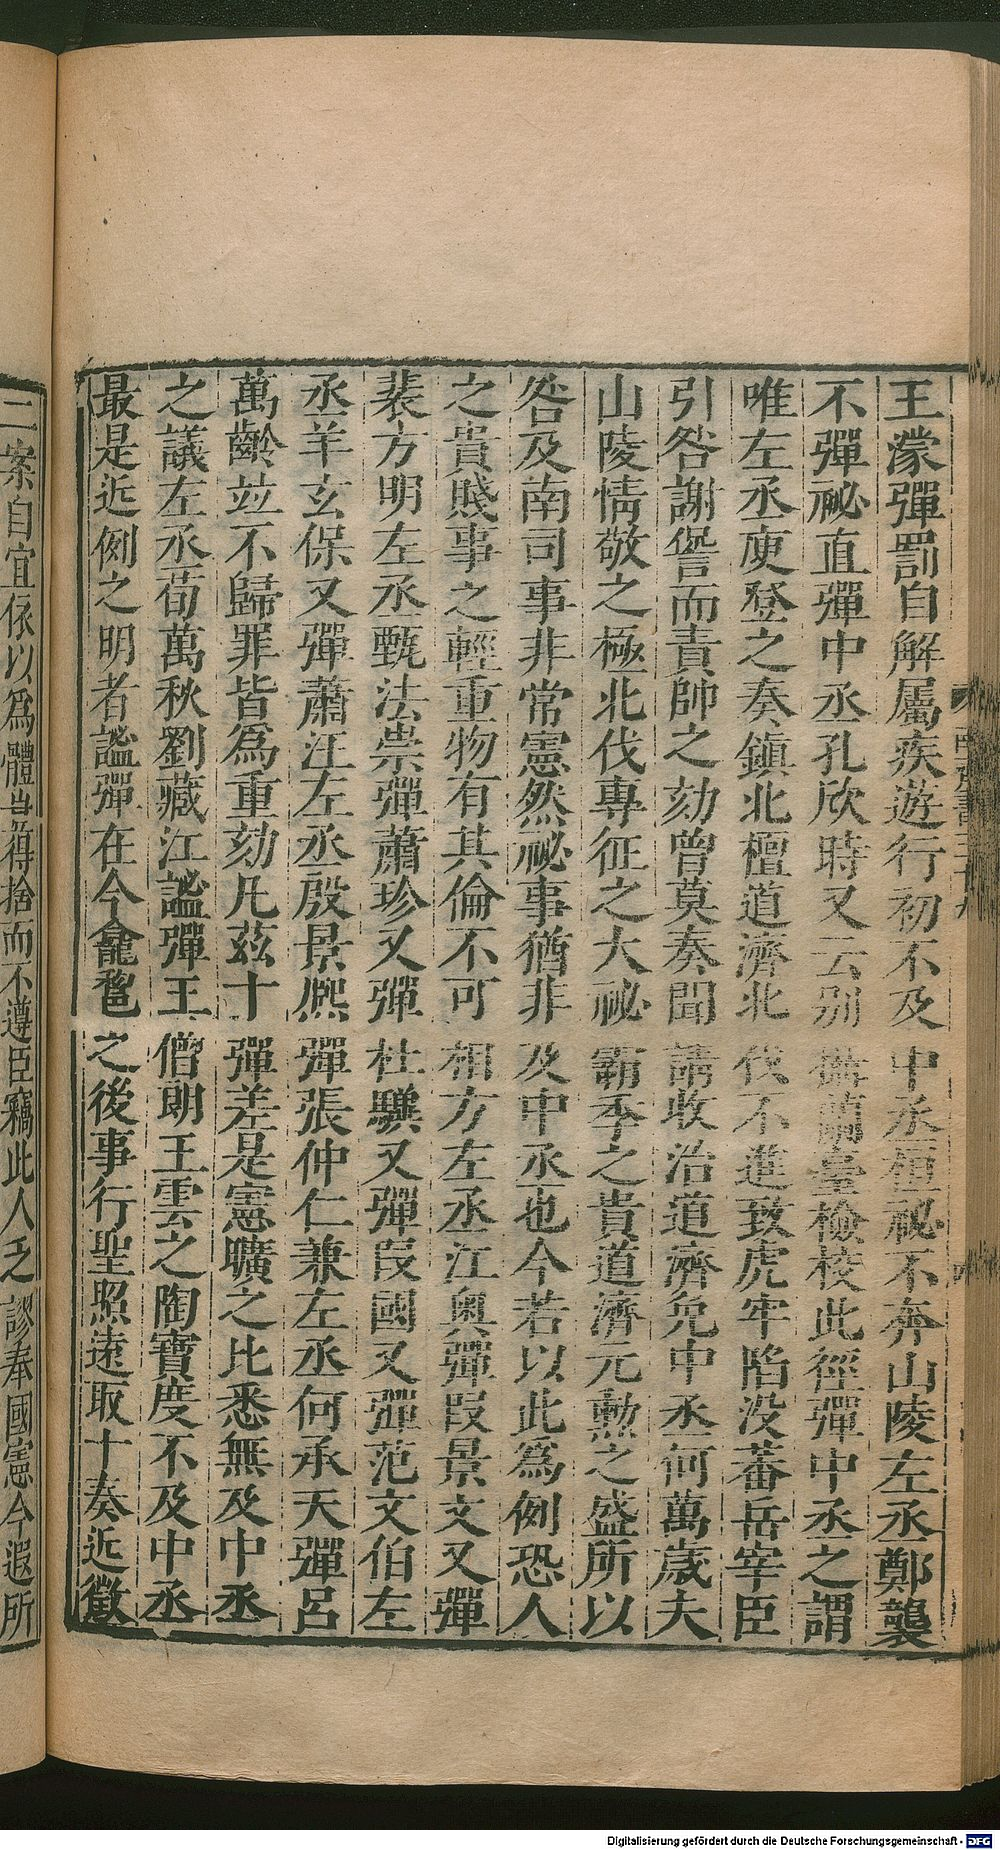 王濛彈罰自解屬疾遊行初不及中丞桓祕不奔山陵左丞鄭襲
不彈祕直彈中丞孔欣時又云別攝蘭臺檢校此徑彈中丞之謂
唯左丞庾登之奏鎮北檀道濟北伐不進致虎牢陷没蕃岳宰臣
引咎謝諐而責帥之劾曾莫奏聞請收治道濟免中丞何萬歲夫
山陵情敬之極北伐專征之大祕霸季之貴道濟元勲之盛所以
咎及南司事非常憲然祕事猶非及中丞也今若以此爲例恐人
之貴賤事之輕重物有其倫不可相方左丞江奥彈段景文又彈
裴方明左丞甄法崇彈蕭珍又彈杜驥又彈段國又彈范文伯左
丞羊玄保又彈蕭汪左丞殷景熈彈張仲仁兼左丞何承天彈呂
萬齡竝不歸罪皆爲重劾凡茲十彈差是憲曠之比悉無及中丞
之議左丞荀萬秋劉藏江謐彈王僧朗王雲之陶寶度不及中丞
最是近例之明者謐彈在今龕𥠖之後事行聖照遠取十奏近徵
二案自宜依以爲體豈得捨而不遵臣竊此人乏謬奉國憲今遐所
Digitalisierung gefördert durch die Deutsche Forschungsgemeinschaft - DFG